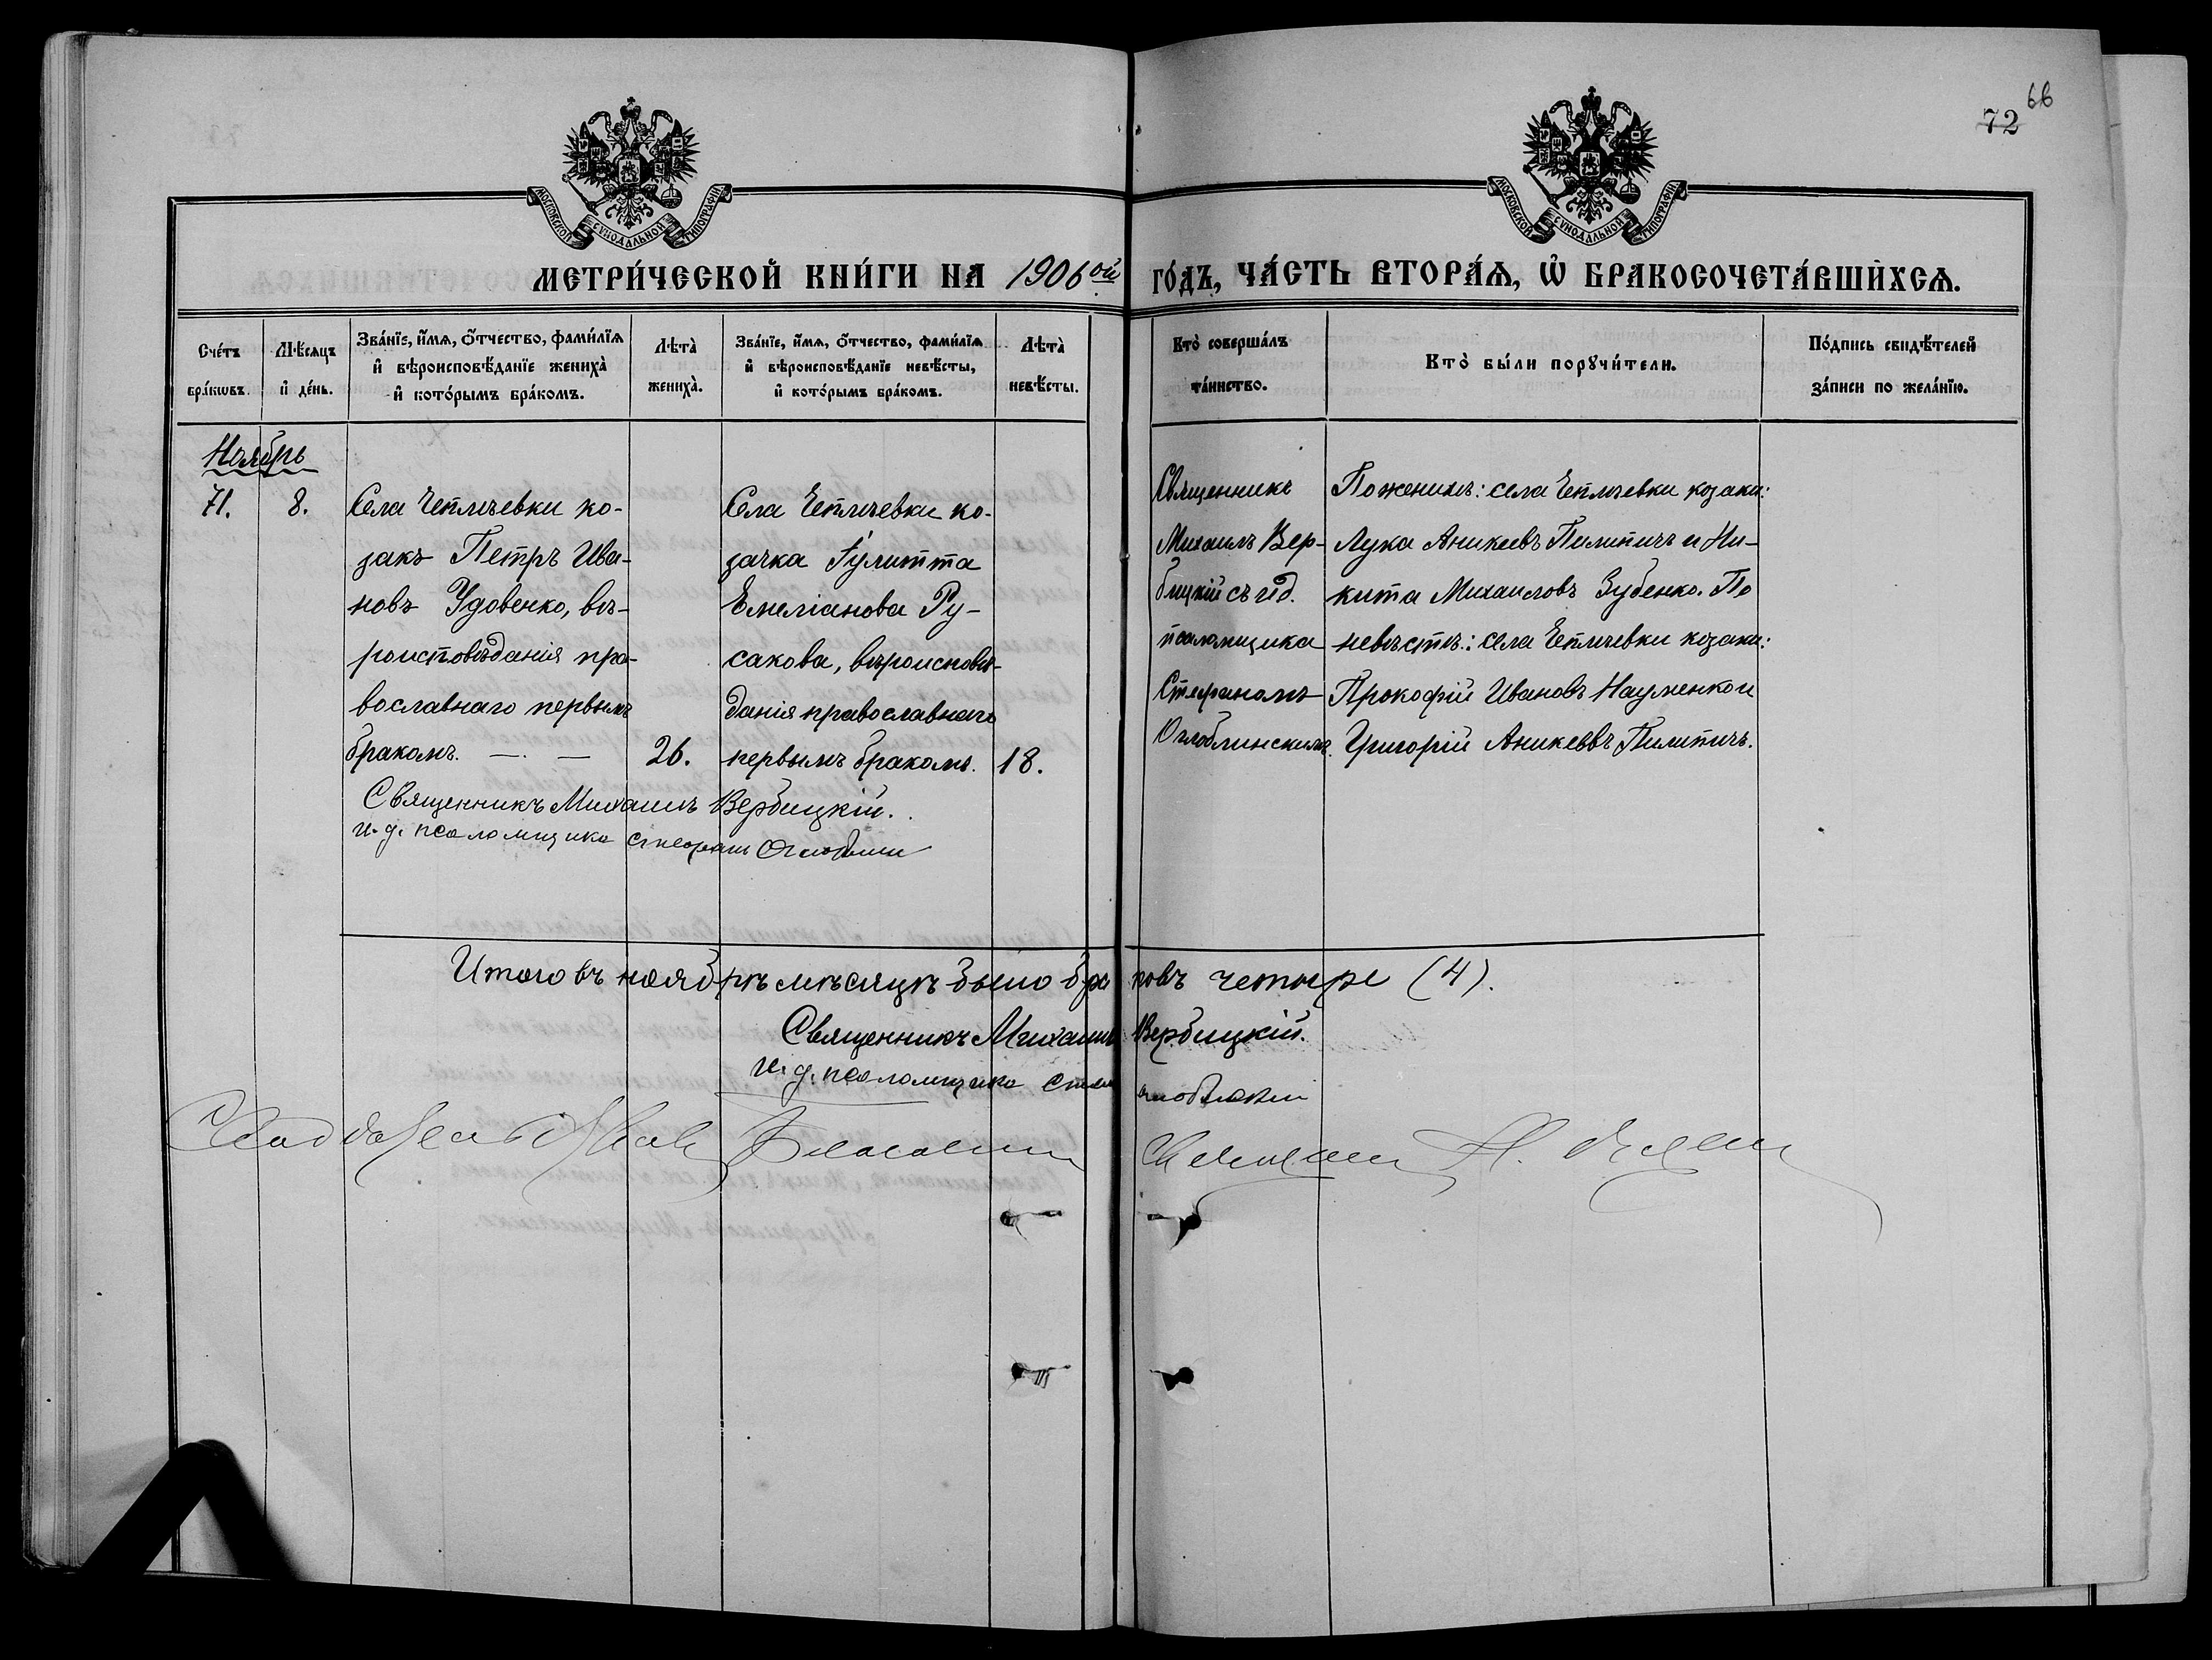 66
72
МОСКОВСКОЙ СѴНОДАЛЬНОЙ ТИПОГРАФІИ
МОСКОВСКОЙ СѴНОДАЛЬНОЙ ТИПОГРАФІИ
МЕТРИ́ЧЕСКОЙ КНИ́ГИ НА 1906ой ГО́ДЪ, ЧА́СТЬ ВТОРА́Ѧ, Ѡ҆ БРАКОСОЧЕТА́ВШИХСѦ.
Сче́тъ
бра́кѡвъ.
Мѣ́сяцъ
и҆ де́нь.
Зва́нїе, и҆́мѧ, о҆́тчество, фами́лїѧ
и҆ вѣроисповѣ́данїе жениха̀
и҆ кото́рымъ бра́комъ.
Лѣта̀
жениха̀.
Зва́нїе, и҆́мѧ, о҆́тчество, фами́лїѧ
и҆ вѣроисповѣ́данїе невѣ́сты,
и҆ кото́рымъ бра́комъ.
Лѣта̀
невѣ́сты.
Кто̀ соверша́лъ
та́инство.
Кто̀ бы́ли порꙋчи́тели.
По́дпись свидѣ́телей
за́писи по жела́нїю.
Ноябрь
71.
8.
Села Чепличевки ко-
закъ Петръ Ива-
новъ Удовенко, вѣ-
роисповѣданія пра-
вославнаго первымъ
бракомъ. — —
26.
Села Чепличевки ко-
зачка Іулитта
Емеліанова Ру-
сакова, вѣроисповѣ-
данія православнаго
первымъ бракомъ.
18.
Священникъ
Михаилъ Вер-
бицкій съ и.д.
псаломщика
Стефаномъ
Оглоблинскимъ.
По женихѣ: села Чепличевки козаки:
Лука Аникеевъ Пилипичъ и Ни-
кита Михаиловъ Зубенко. По
невѣстѣ: села Чепличевки козаки:
Прокофій Ивановъ Науменко и
Григорій Аникеевъ Пилипичъ.
Священникъ Михаилъ Вербицкій.
и. д. псаломщика Стефанъ
Итого въ ноябрѣ мѣсяцѣ было браковъ четыре (4).
Священникъ Михаилъ Вербицкій.
и. д. псаломщика